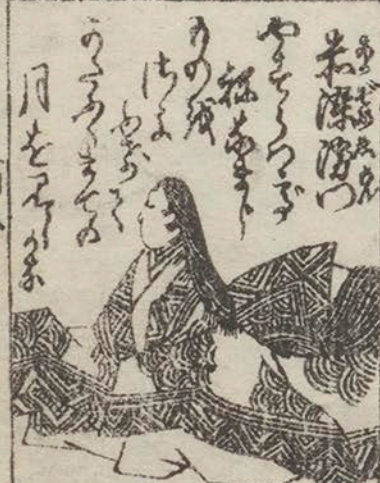 赤染衛門
あかぞめゑもん
やすらはで
寝なまし
ものを
さよ
ふけて
かたふくまでの
月を見しかな